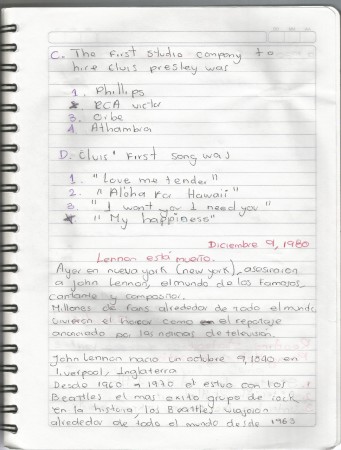 C. The First Studio company to
hire Elvis presley was
1. Phillips
x RCA victor
3. Orbe
4. Athambra
D. Elvis' First song was
1. "Love me tender"
2. "Aloha for Hawaii"
3. "I want you I need you"
x "My happiness"
Diciembre 9, 1980
Lennon está muerto.
Ayer en nueva york (new york), asesinaron
a John Lennon, el mundo de los famosos,
cantante y compositor.
Millones de fans alrededor de todo el mundo
vivieron el horror como el reportaje
anunciado por las noticias de television.
John Lennon nacio un octubre 9, 1840 en
Liverpool, Inglaterra
Desde 1960 a 1970 el estuvo con los
Beattles el mas exito grupo de rock
en la historia, los Beattles viajaron
alrededor de todo el mundo desde 1963